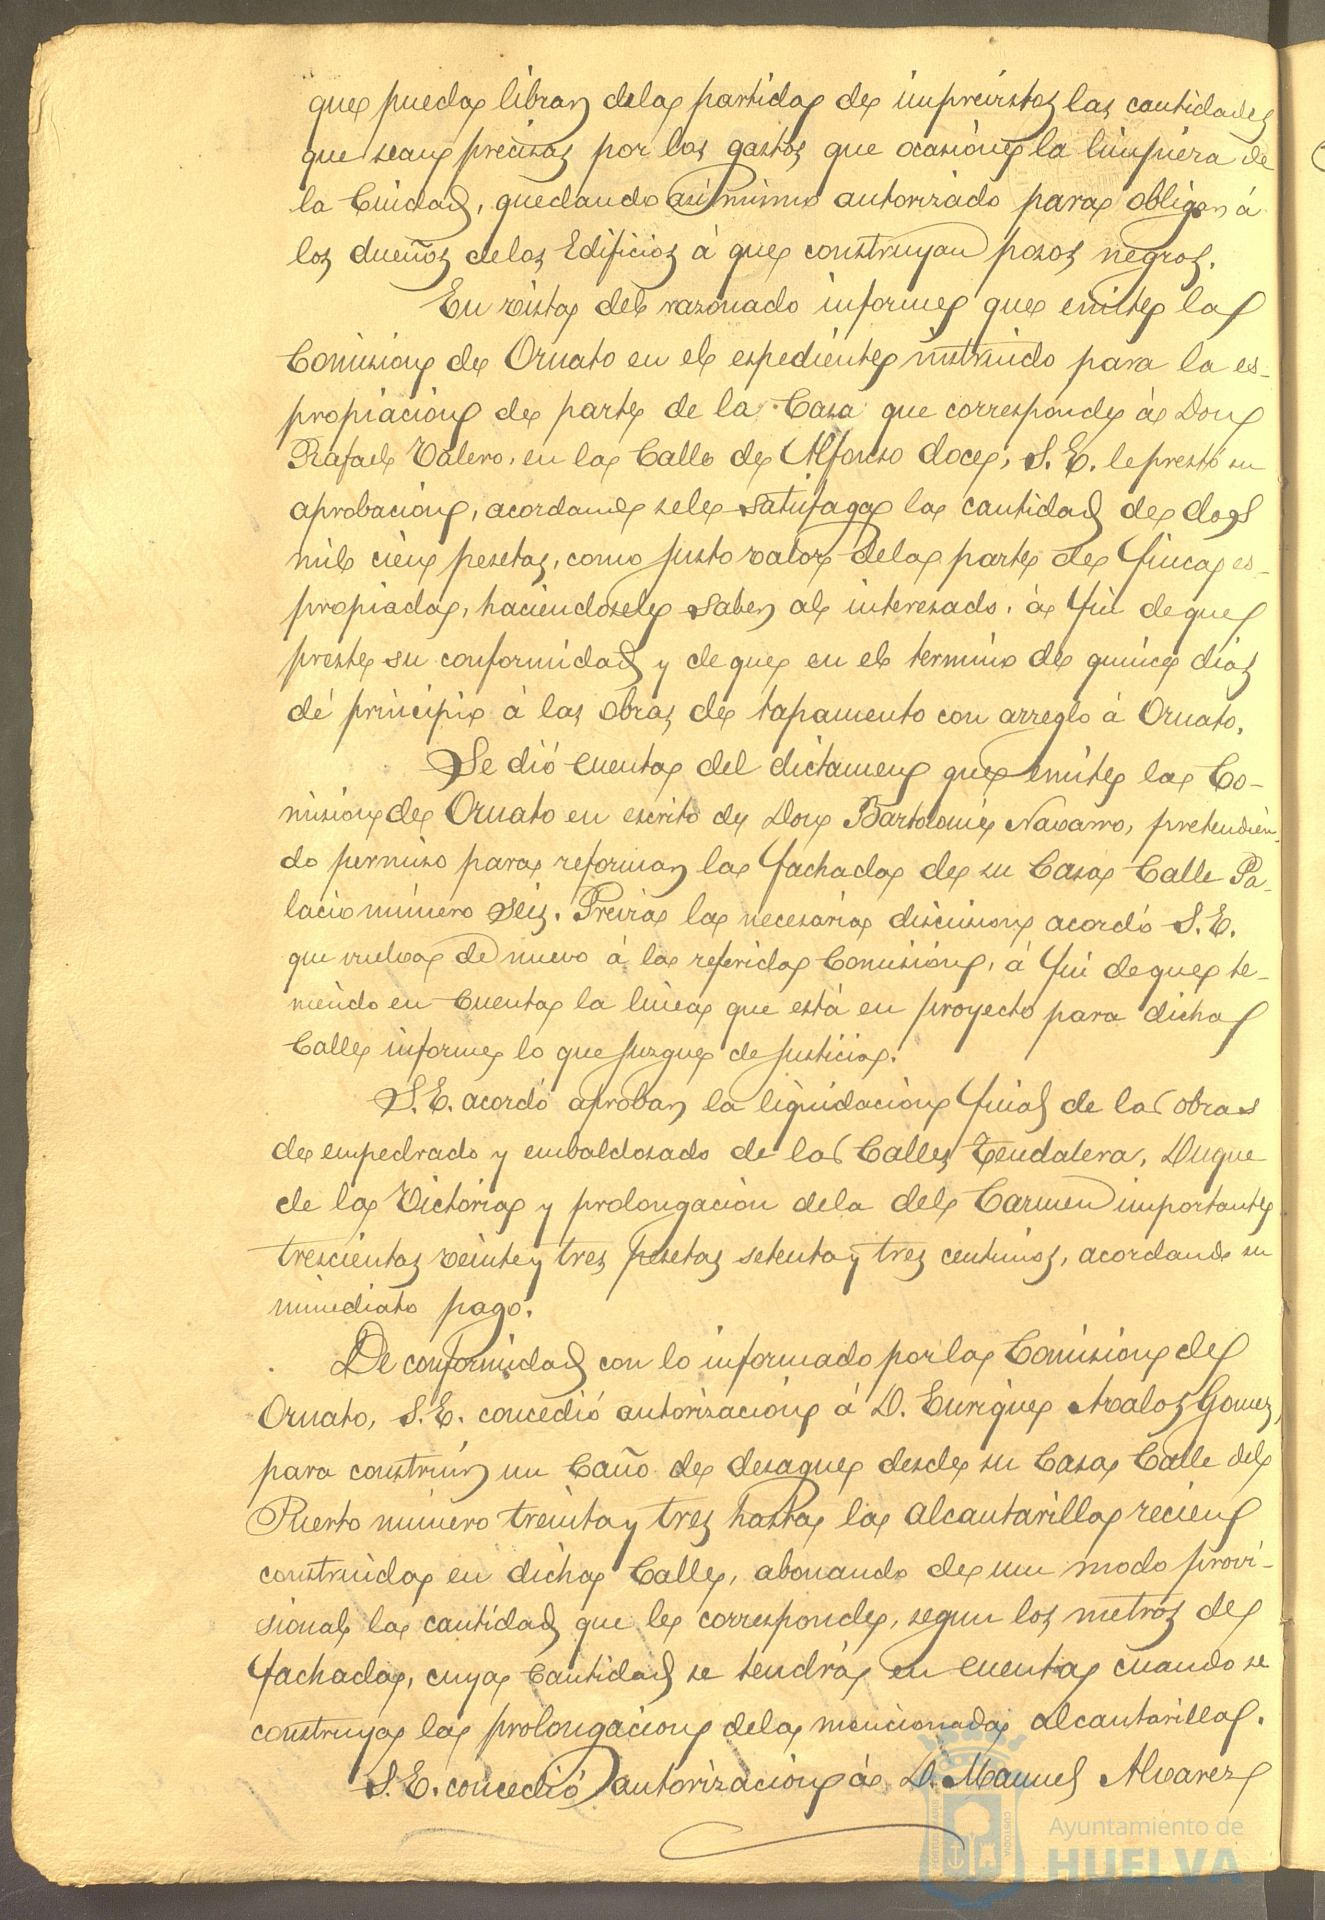 que pueda librar dela partida de imprevistos las cantidades
que sean precisas por los gastos que ocasione la limpieza de
la Ciudad, quedando asi mismo autorizado para obligar á
los dueños delos Edificios á que construyan posos negros.
En vista del razonado informe que emite la
Comision de Ornato en el espediente instruido para la es-
propiacion de parte de la Casa que corresponde á Don
Rafael Valero, en la Calle de Alfonso doce, S. E. le prestó su
aprobacion, acordando sele satisfaga la cantidad de dos
mil cien pesetas, como justo valor dela parte de finca es-
propiada, haciendosele saber al interesado, á fin de que
preste su conformidad y de que en el termino de quince dias
dé principio á las obras de tapamento con arreglo á Ornato.
Se dió cuenta del dictamen que emite la Co-
mision de Ornato en escrito de Don Bartolomé Navarro, pretendien-
do permiso para reformar la fachada de su Casa Calle Pa-
lacio número seis. Previa la necesaria discusion acordó S. E.
que vuelva de nuevo á la referida Comisión, á fin de que te-
niendo en cuenta la linea que está en proyecto para dicha
Calle informe lo que juzgue de justicia.
S. E. acordó aprobar la liquidacion final de las obras
de empedrado y embaldosado de las Calles Tendalera, Duque
de la Victoria y prolongacion dela del Carmen importante
trescientas veinte y tres pesetas setenta y tres centimos, acordando su
inmediato pago.
De conformidad con lo informado por la Comision de
Ornato, S. E. concedió autorizacion á D. Enrique Avalos Gomez,
para construir un Caño de desague desde su Casa Calle del
Puerto número treinta y tres hasta la alcantarilla recien
construida en dicha Calle, abonando de un modo provi-
sional la cantidad que le corresponde, segun los metros de
fachada, cuya Cantidad se tendrá en cuenta cuando se
construya la prolongacion dela mencionada alcantarilla.
S. E. concedió autorizacion á D. Manuel Alvarez
Ayuntamiento de
HUELVA